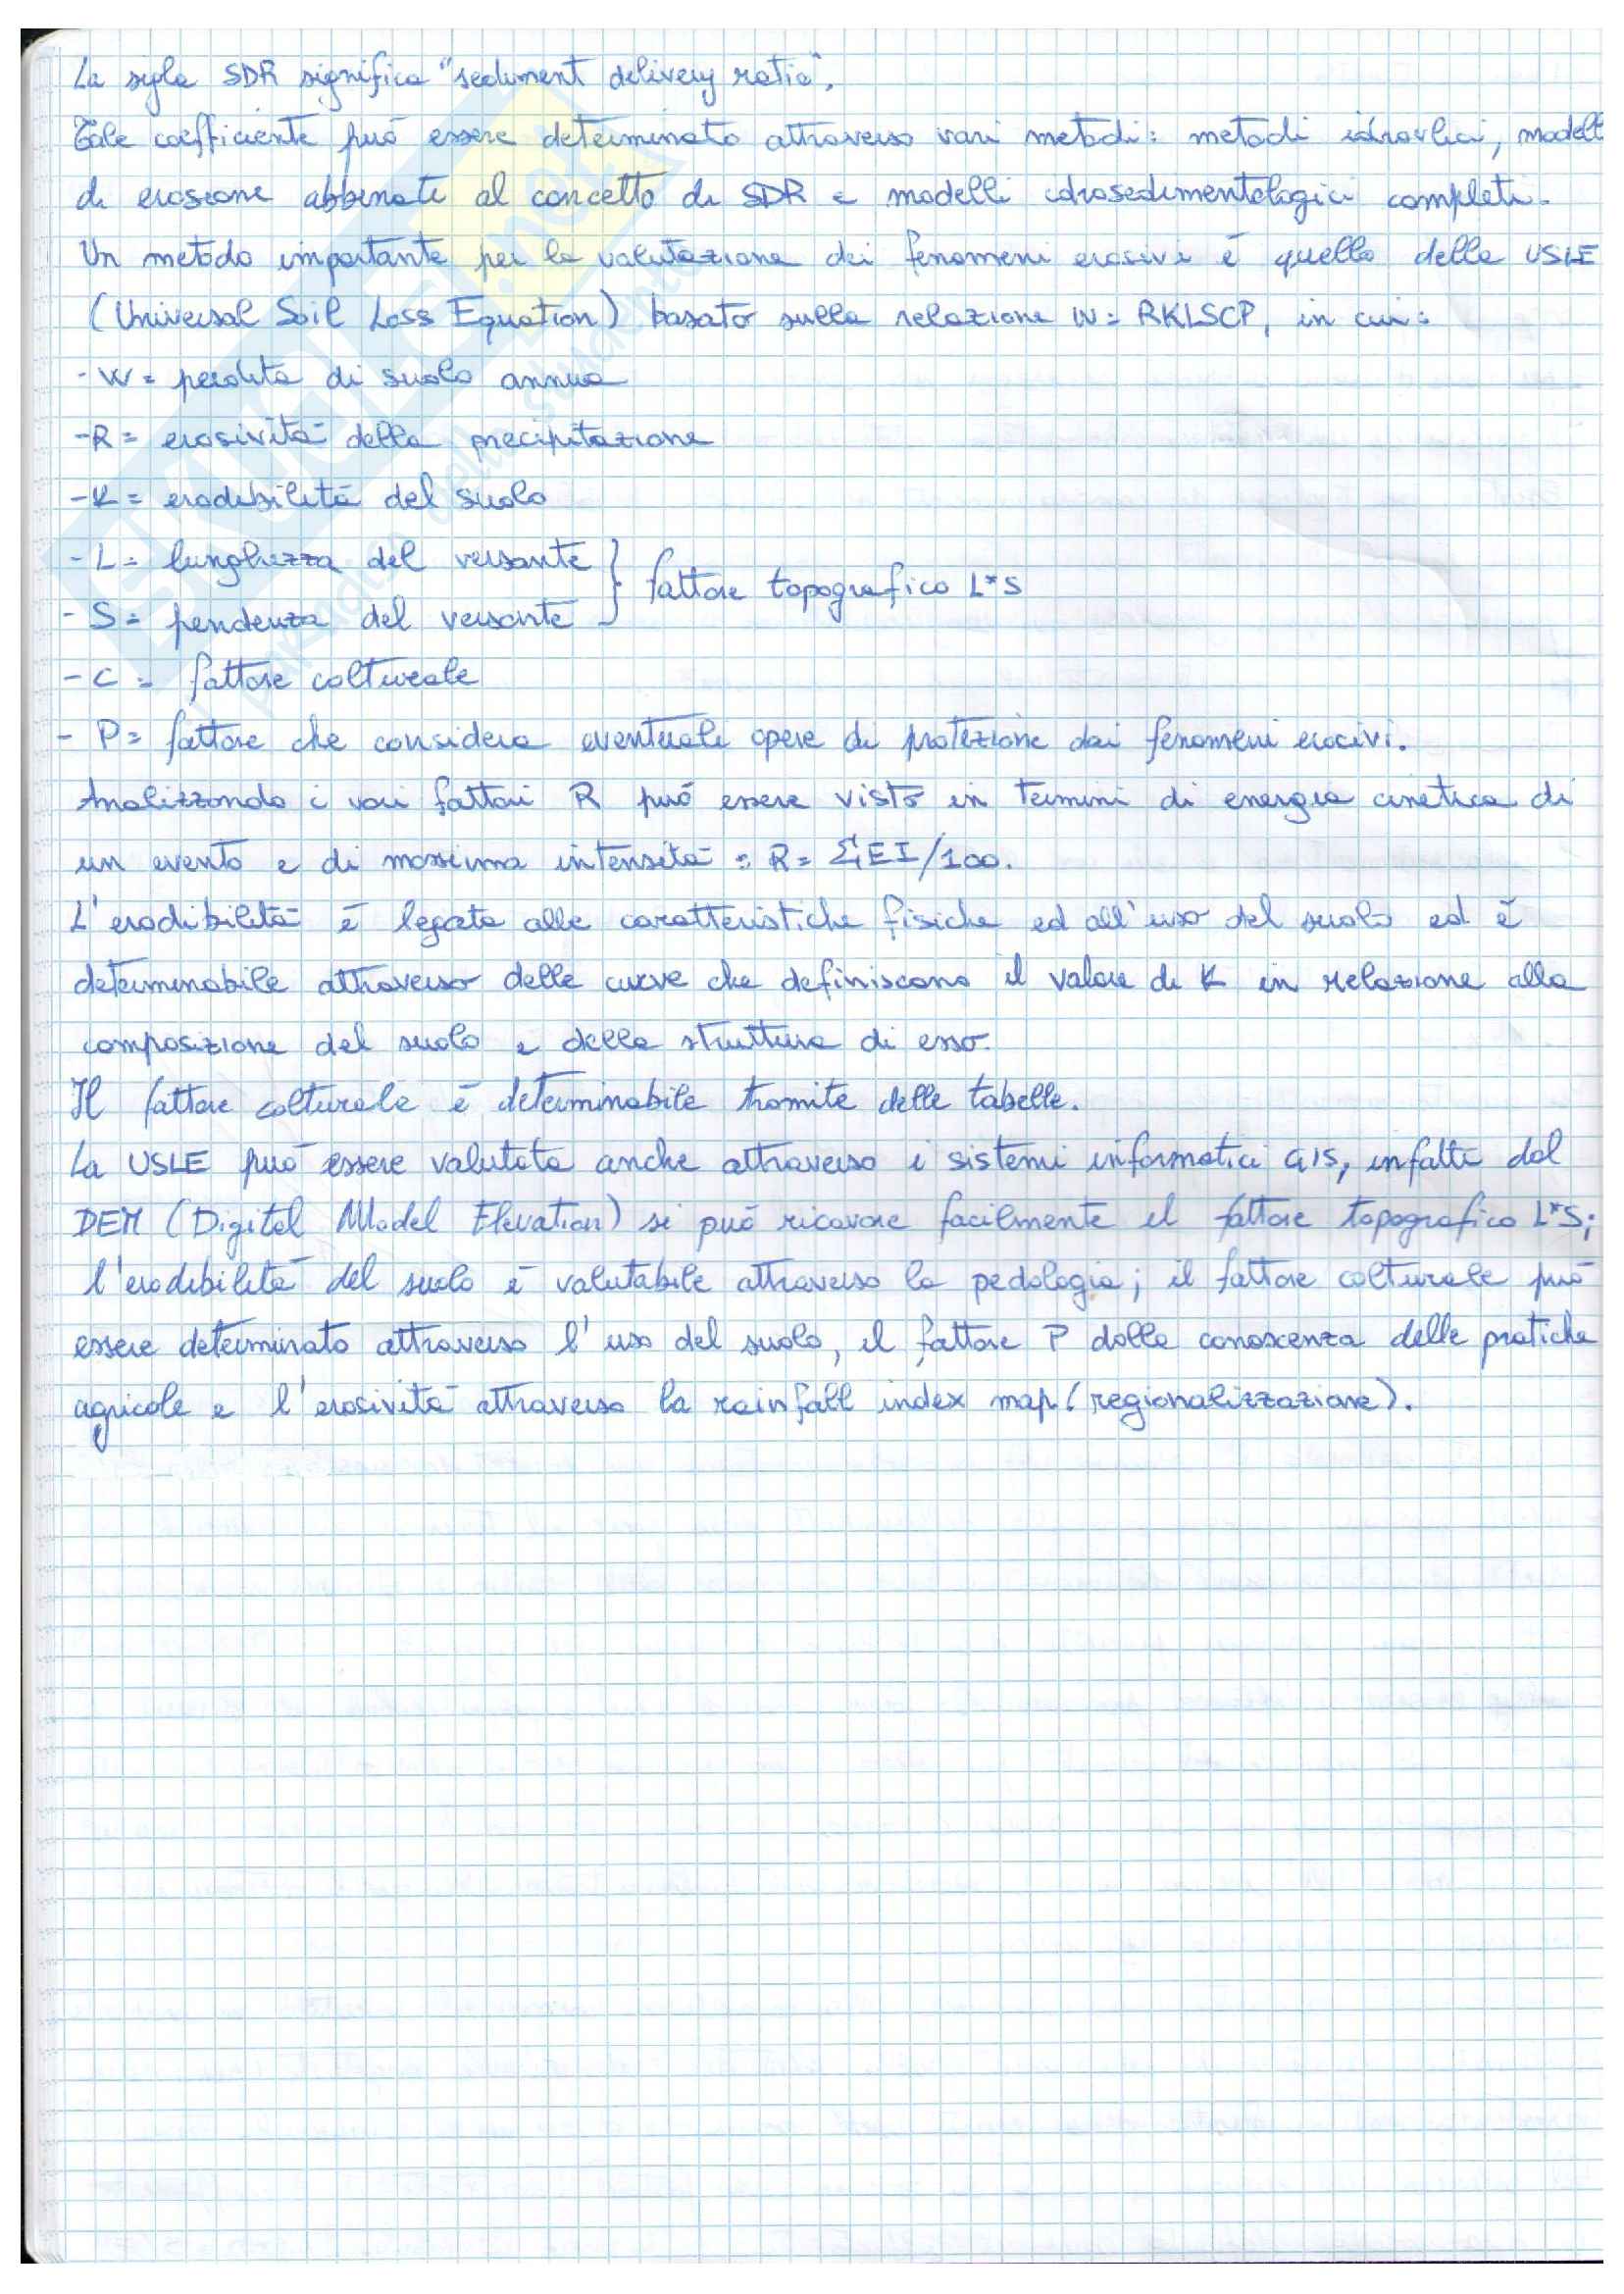 La sigla SDR significa "sediment delivery ratio".
Tale coefficiente può essere determinato attraverso vari metodi: metodi idraulici, modelli
di erosione abbinati al concetto di SDR e modelli idrosedimentologici completi.
Un metodo importante per la valutazione dei fenomeni erosivi è quello della USLE
(Universal Soil Loss Equation) basato sulla relazione W = RKLSCP, in cui:
- W = perdita di suolo annua
- R = erosività della precipitazione
- K = erodibilità del suolo
- L = lunghezza del versante } fattore topografico L*S
- S = pendenza del versante
- C = fattore colturale
- P = fattore che considera eventuali opere di protezione dai fenomeni erosivi.
Analizzando i vari fattori R può essere visto in termini di energia cinetica di
un evento e di massima intensità : R = ΣEI/100.
L'erodibilità è legata alle caratteristiche fisiche ed all'uso del suolo ed è
determinabile attraverso delle curve che definiscono il valore di K in relazione alla
composizione del suolo e della struttura di esso.
Il fattore colturale è determinabile tramite delle tabelle.
La USLE può essere valutata anche attraverso i sistemi informatici GIS, infatti dal
DEM (Digital Model Elevation) si può ricavare facilmente il fattore topografico L*S;
l'erodibilità del suolo è valutabile attraverso la pedologia; il fattore colturale può
essere determinato attraverso l'uso del suolo, il fattore P dalla conoscenza delle pratiche
agricole e l'erosività attraverso la rainfall index map (regionalizzazione).